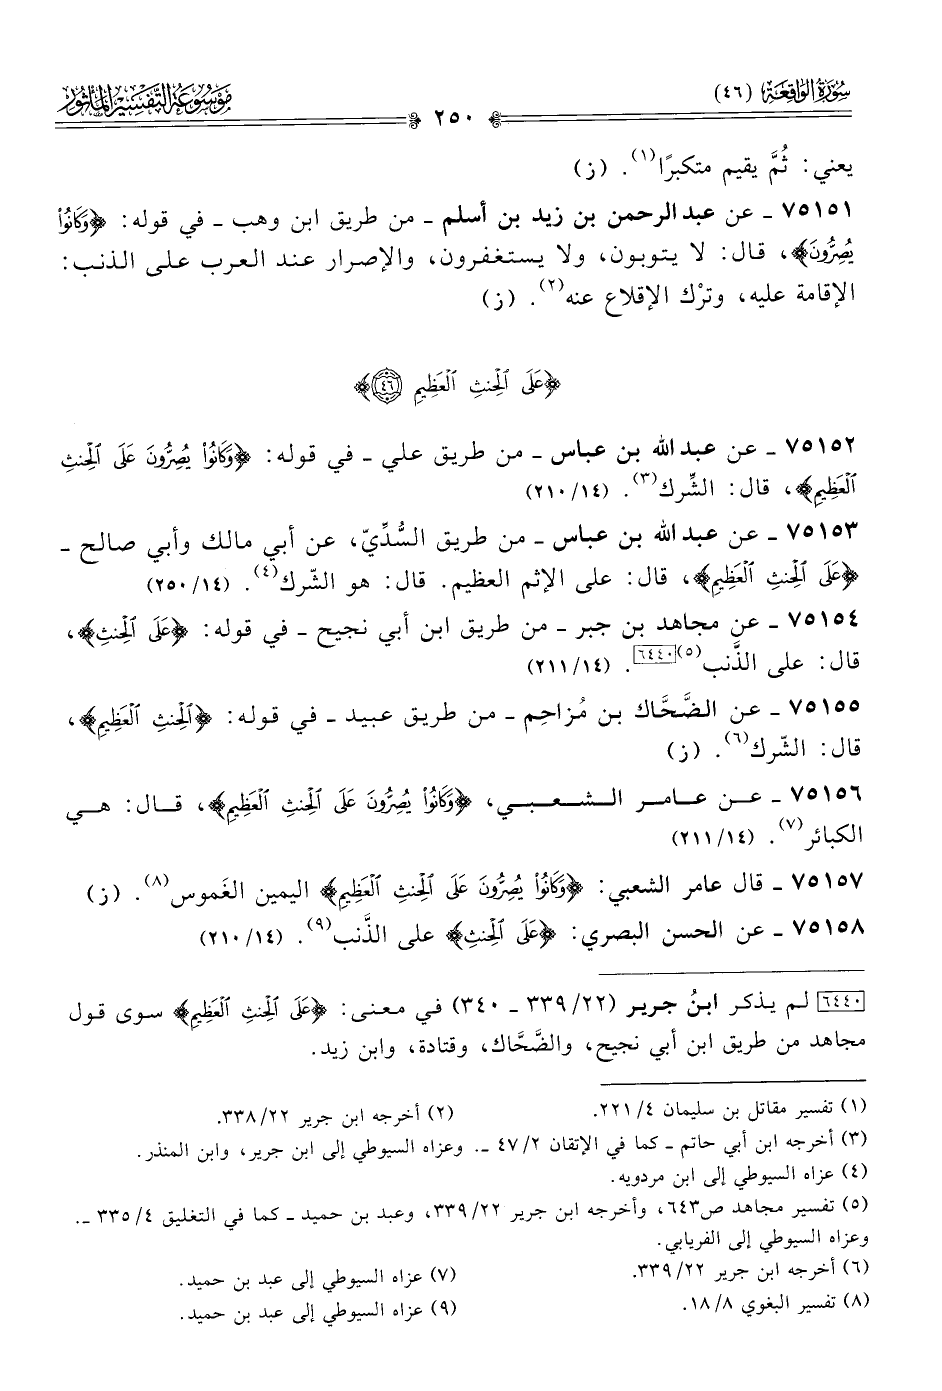 سُورَةُ الوَاقِعَة (٤٦)
٢٥٠
مَوْسُوعَة التَّفْسِيْر المَأثُور
يعني: ثُمَّ يقيم متكبرًا(١). (ز)
٧٥١٥١ ـ عن عبد الرحمن بن زيد بن أسلم ـ من طريق ابن وهب ـ في قوله: ﴿وَكَانُوا۟
يُصِرُّونَ﴾، قال: لا يتوبون، ولا يستغفرون، والإصرار عند العرب على الذنب:
الإقامة عليه، وترْك الإقلاع عنه(٢). (ز)
﴿عَلَى ٱلْحِنثِ ٱلْعَظِيمِ ٤٦﴾
٧٥١٥٢ ـ عن عبد الله بن عباس ـ من طريق علي ـ في قوله: ﴿وَكَانُوا۟ يُصِرُّونَ عَلَى ٱلْحِنثِ
ٱلْعَظِيمِ﴾، قال: الشِّرك(٣). (٢١٠/١٤)
٧٥١٥٣ ـ عن عبد الله بن عباس ـ من طريق السُّدِّيّ، عن أبي مالك وأبي صالح ـ
﴿عَلَى ٱلْحِنثِ ٱلْعَظِيمِ﴾، قال: على الإثم العظيم. قال: هو الشّرك(٤). (٢٥٠/١٤)
٧٥١٥٤ ـ عن مجاهد بن جبر ـ من طريق ابن أبي نجيح ـ في قوله: ﴿عَلَى ٱلْحِنثِ﴾،
قال: على الذَّنب(٥)[٦٤٤٠]. (٢١١/١٤)
٧٥١٥٥ ـ عن الضَّحَّاك بن مُزاحِم ـ من طريق عبيد ـ في قوله: ﴿ٱلْحِنثِ ٱلْعَظِيمِ﴾،
قال: الشّرك(٦). (ز)
٧٥١٥٦ ـ عن عامر الشعبي، ﴿وَكَانُوا۟ يُصِرُّونَ عَلَى ٱلْحِنثِ ٱلْعَظِيمِ﴾، قال: هي
الكبائر(٧). (٢١١/١٤)
٧٥١٥٧ ـ قال عامر الشعبي: ﴿وَكَانُوا۟ يُصِرُّونَ عَلَى ٱلْحِنثِ ٱلْعَظِيمِ﴾ اليمين الغَموس(٨). (ز)
٧٥١٥٨ ـ عن الحسن البصري: ﴿عَلَى ٱلْحِنثِ﴾ على الذَّنب(٩). (٢١٠/١٤)
[٦٤٤٠] لم يذكر ابنُ جرير (٣٣٩/٢٢ ـ ٣٤٠) في معنى: ﴿عَلَى ٱلْحِنثِ ٱلْعَظِيمِ﴾ سوى قول
مجاهد من طريق ابن أبي نجيح، والضَّحَّاك، وقتادة، وابن زيد.
(١) تفسير مقاتل بن سليمان ٢٢١/٤. (٢) أخرجه ابن جرير ٣٣٨/٢٢.
(٣) أخرجه ابن أبي حاتم ـ كما في الإتقان ٤٧/٢ ـ. وعزاه السيوطي إلى ابن جرير، وابن المنذر.
(٤) عزاه السيوطي إلى ابن مردويه.
(٥) تفسير مجاهد ص٦٤٣، وأخرجه ابن جرير ٣٣٩/٢٢، وعبد بن حميد ـ كما في التغليق ٣٣٥/٤ ـ.
وعزاه السيوطي إلى الفريابي.
(٦) أخرجه ابن جرير ٣٣٩/٢٢. (٧) عزاه السيوطي إلى عبد بن حميد.
(٨) تفسير البغوي ١٨/٨. (٩) عزاه السيوطي إلى عبد بن حميد.